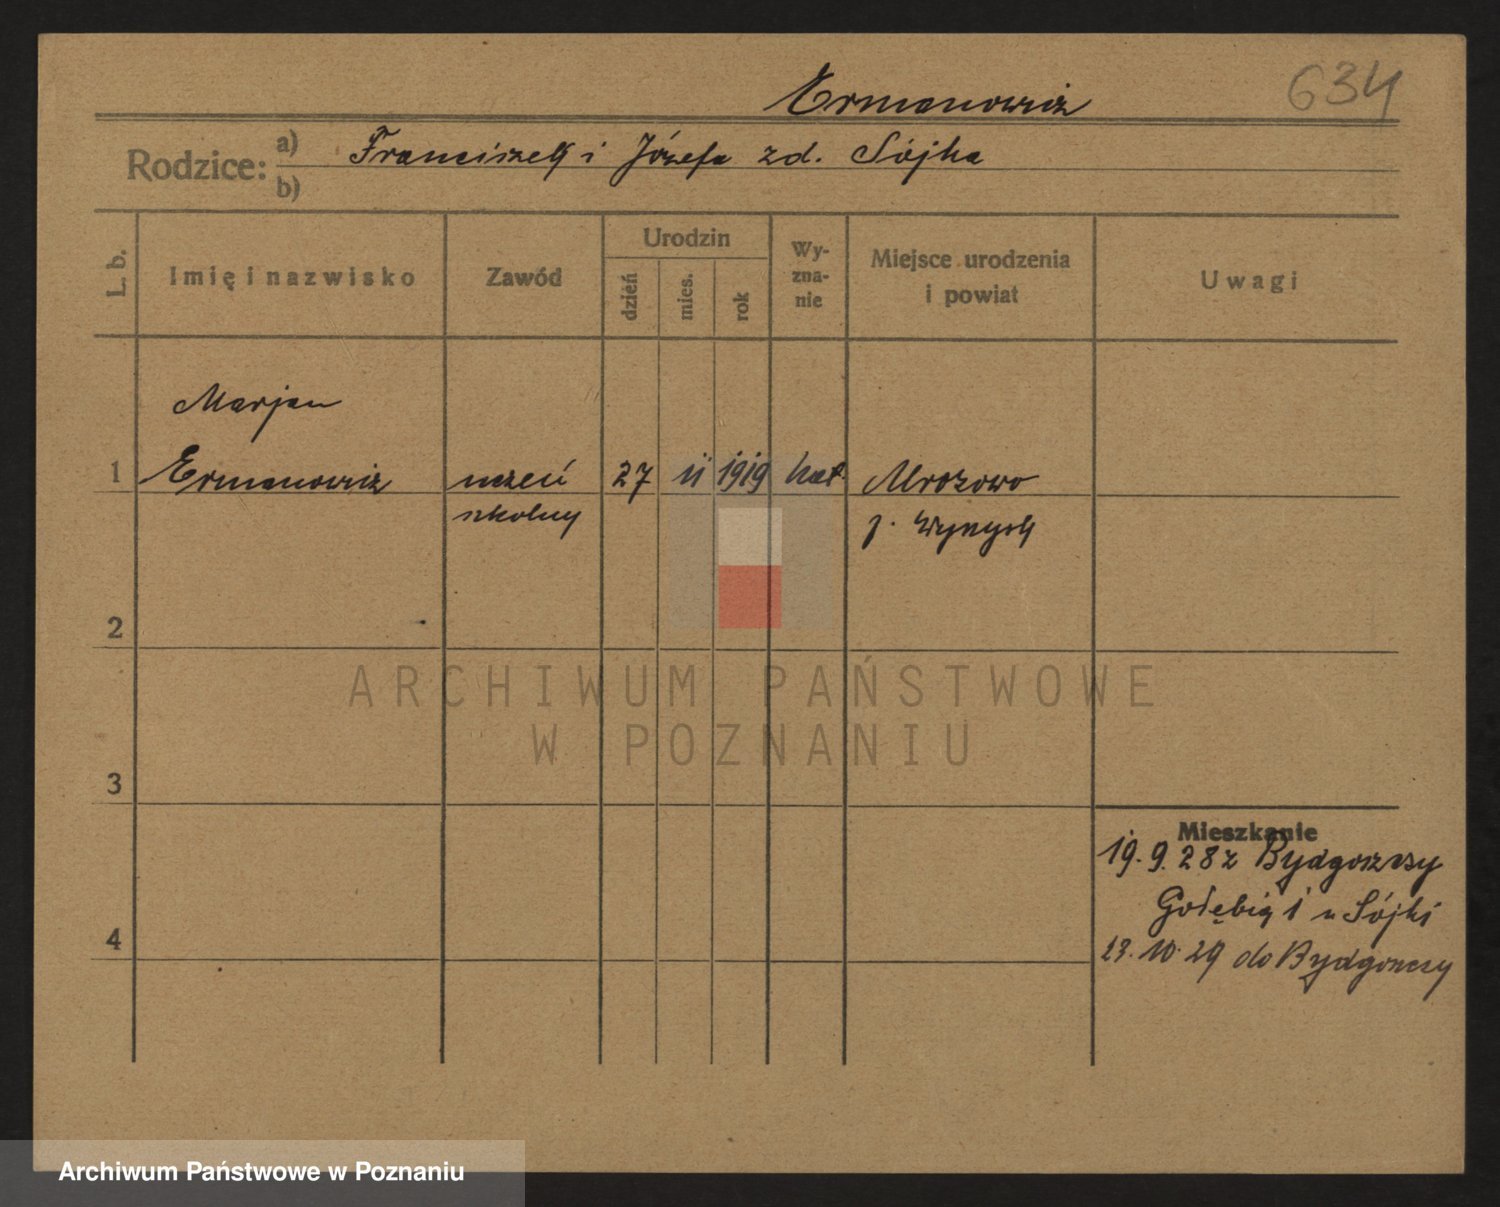 Ermanowicz 634
Rodzice: a) Franciszek i Józefa zd. Sójka
b)
L. b. Imię i nazwisko Zawód Urodzin dzień mies. rok Wyznanie Miejsce urodzenia i powiat Uwagi
Marjan
1 Ermanowicz uczeń 27 11 1919 kat. Mrozowo
szkolny p. Wyrzysk
2
ARCHIWUM PAŃSTWOWE
W POZNANIU
3
Mieszkanie
19. 9. 28 z Bydgoszczy
Gołębia 1 u Sójki
4
23. 10. 29 do Bydgoszczy
Archiwum Państwowe w Poznaniu